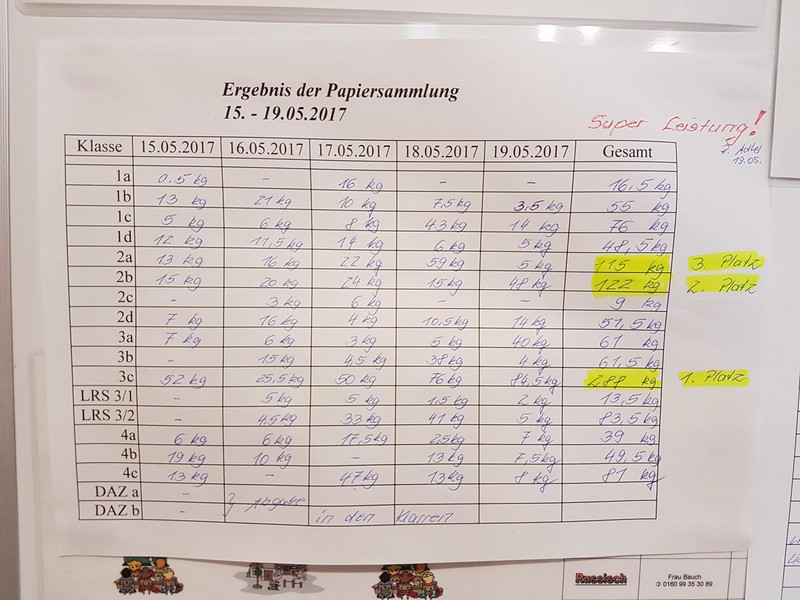 Ergebnis der Papiersammlung
15. - 19.05.2017
Super Leistung!
19.05.
Klasse 15.05.2017 16.05.2017 17.05.2017 18.05.2017 19.05.2017 Gesamt
1a 0,5 kg - 16 kg - - 16,5 kg
1b 13 kg 21 kg 10 kg 7,5 kg 3,5 kg 55 kg
1c 5 kg 6 kg 8 kg 43 kg 14 kg 76 kg
1d 12 kg 11,5 kg 14 kg 6 kg 5 kg 48,5 kg
2a 13 kg 16 kg 22 kg 59 kg 5 kg 115 kg 3. Platz
2b 15 kg 20 kg 24 kg 15 kg 48 kg 122 kg 2. Platz
2c - 3 kg 6 kg - - 9 kg
2d 7 kg 16 kg 4 kg 10,5 kg 14 kg 51,5 kg
3a 7 kg 6 kg 3 kg 5 kg 40 kg 61 kg
3b - 15 kg 4,5 kg 38 kg 4 kg 61,5 kg
3c 52 kg 25,5 kg 50 kg 76 kg 84,5 kg 288 kg 1. Platz
LRS 3/1 - 5 kg 5 kg 1,5 kg 2 kg 13,5 kg
LRS 3/2 - 4,5 kg 33 kg 41 kg 5 kg 83,5 kg
4a 6 kg 6 kg 17,5 kg 2,5 kg 7 kg 39 kg
4b 19 kg 10 kg - 13 kg 7,5 kg 49,5 kg
4c 13 kg - 47 kg 13 kg 8 kg 81 kg
DAZ a - } Abgabe
DAZ b - in den Klassen
Russisch
Frau Bauch
✆ 0160 99 35 30 89